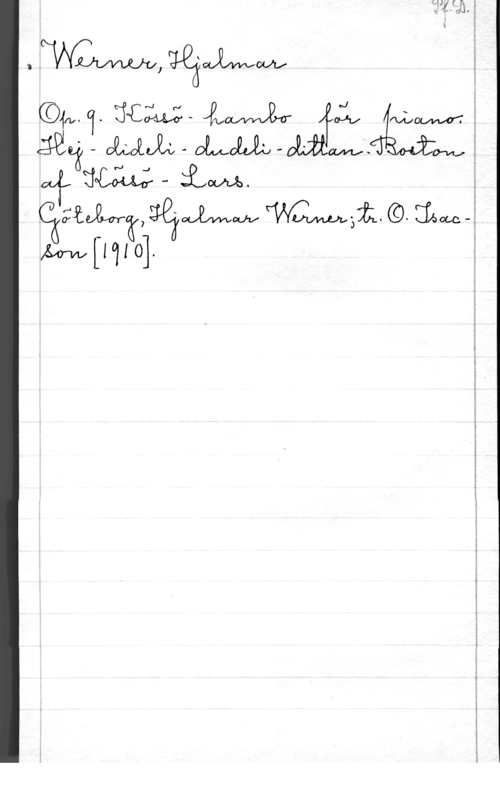 Pf. D.
Werner, Hjalmar
Op. 9. Kösö-hambo för piano.
Hej-dideli-dudeli-dittan. Boston
af Kösö-Lars.
Göteborg, Hjalmar Werner; tr. O. Isac-
son [1910].